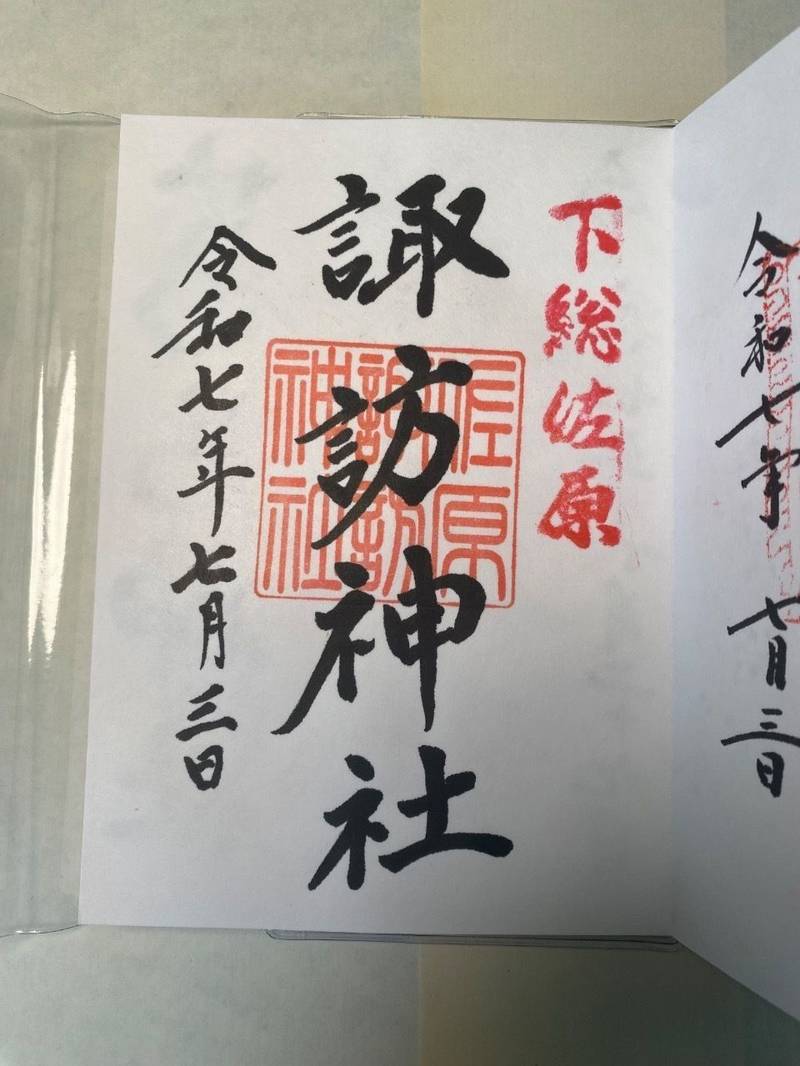 令和七年 七月三日
下総佐原
諏訪神社
佐原
諏訪
神社
令和七年七月三日